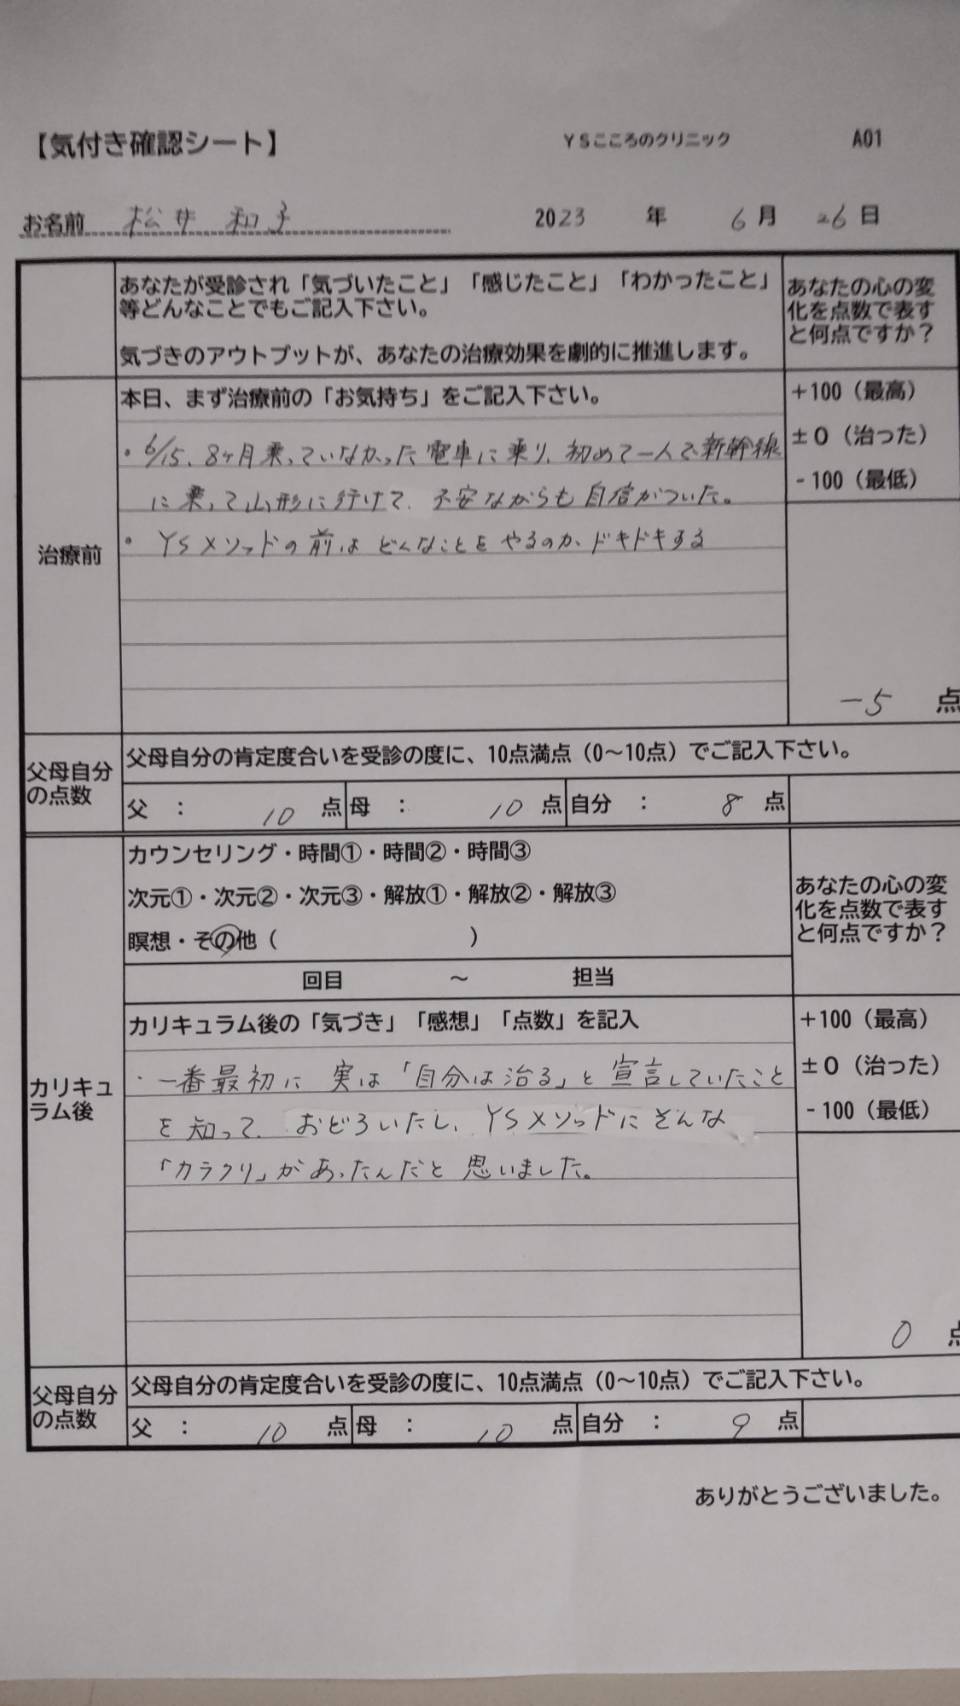 【気付き確認シート】 YSこころのクリニック A01
お名前 松井 和子 2023 年 6 月 26 日
あなたが受診され「気づいたこと」「感じたこと」「わかったこと」
等どんなことでもご記入下さい。
気づきのアウトプットが、あなたの治療効果を劇的に推進します。
あなたの心の変
化を点数で表す
と何点ですか？
治療前
本日、まず治療前の「お気持ち」をご記入下さい。
・6/15、8ヶ月乗っていなかった電車に乗り、初めて一人で新幹線
に乗って山形に行けて、不安ながらも自信がついた。
・YSメソッドの前はどんなことをやるのか、ドキドキする
+100（最高）
±0（治った）
-100（最低）
-5 点
父母自分
の点数
父母自分の肯定度合いを受診の度に、10点満点（0〜10点）でご記入下さい。
父 ： 10 点 母 ： 10 点 自分 ： 8 点
カリキュ
ラム後
カウンセリング・時間①・時間②・時間③
次元①・次元②・次元③・解放①・解放②・解放③
瞑想・その他（ ）
回目 〜 担当
あなたの心の変
化を点数で表す
と何点ですか？
カリキュラム後の「気づき」「感想」「点数」を記入
・一番最初に実は「自分は治る」と宣言していたこと
を知って、おどろいたし、YSメソッドにそんな
「カラクリ」があったんだと思いました。
+100（最高）
±0（治った）
-100（最低）
0 点
父母自分
の点数
父母自分の肯定度合いを受診の度に、10点満点（0〜10点）でご記入下さい。
父 ： 10 点 母 ： 10 点 自分 ： 9 点
ありがとうございました。